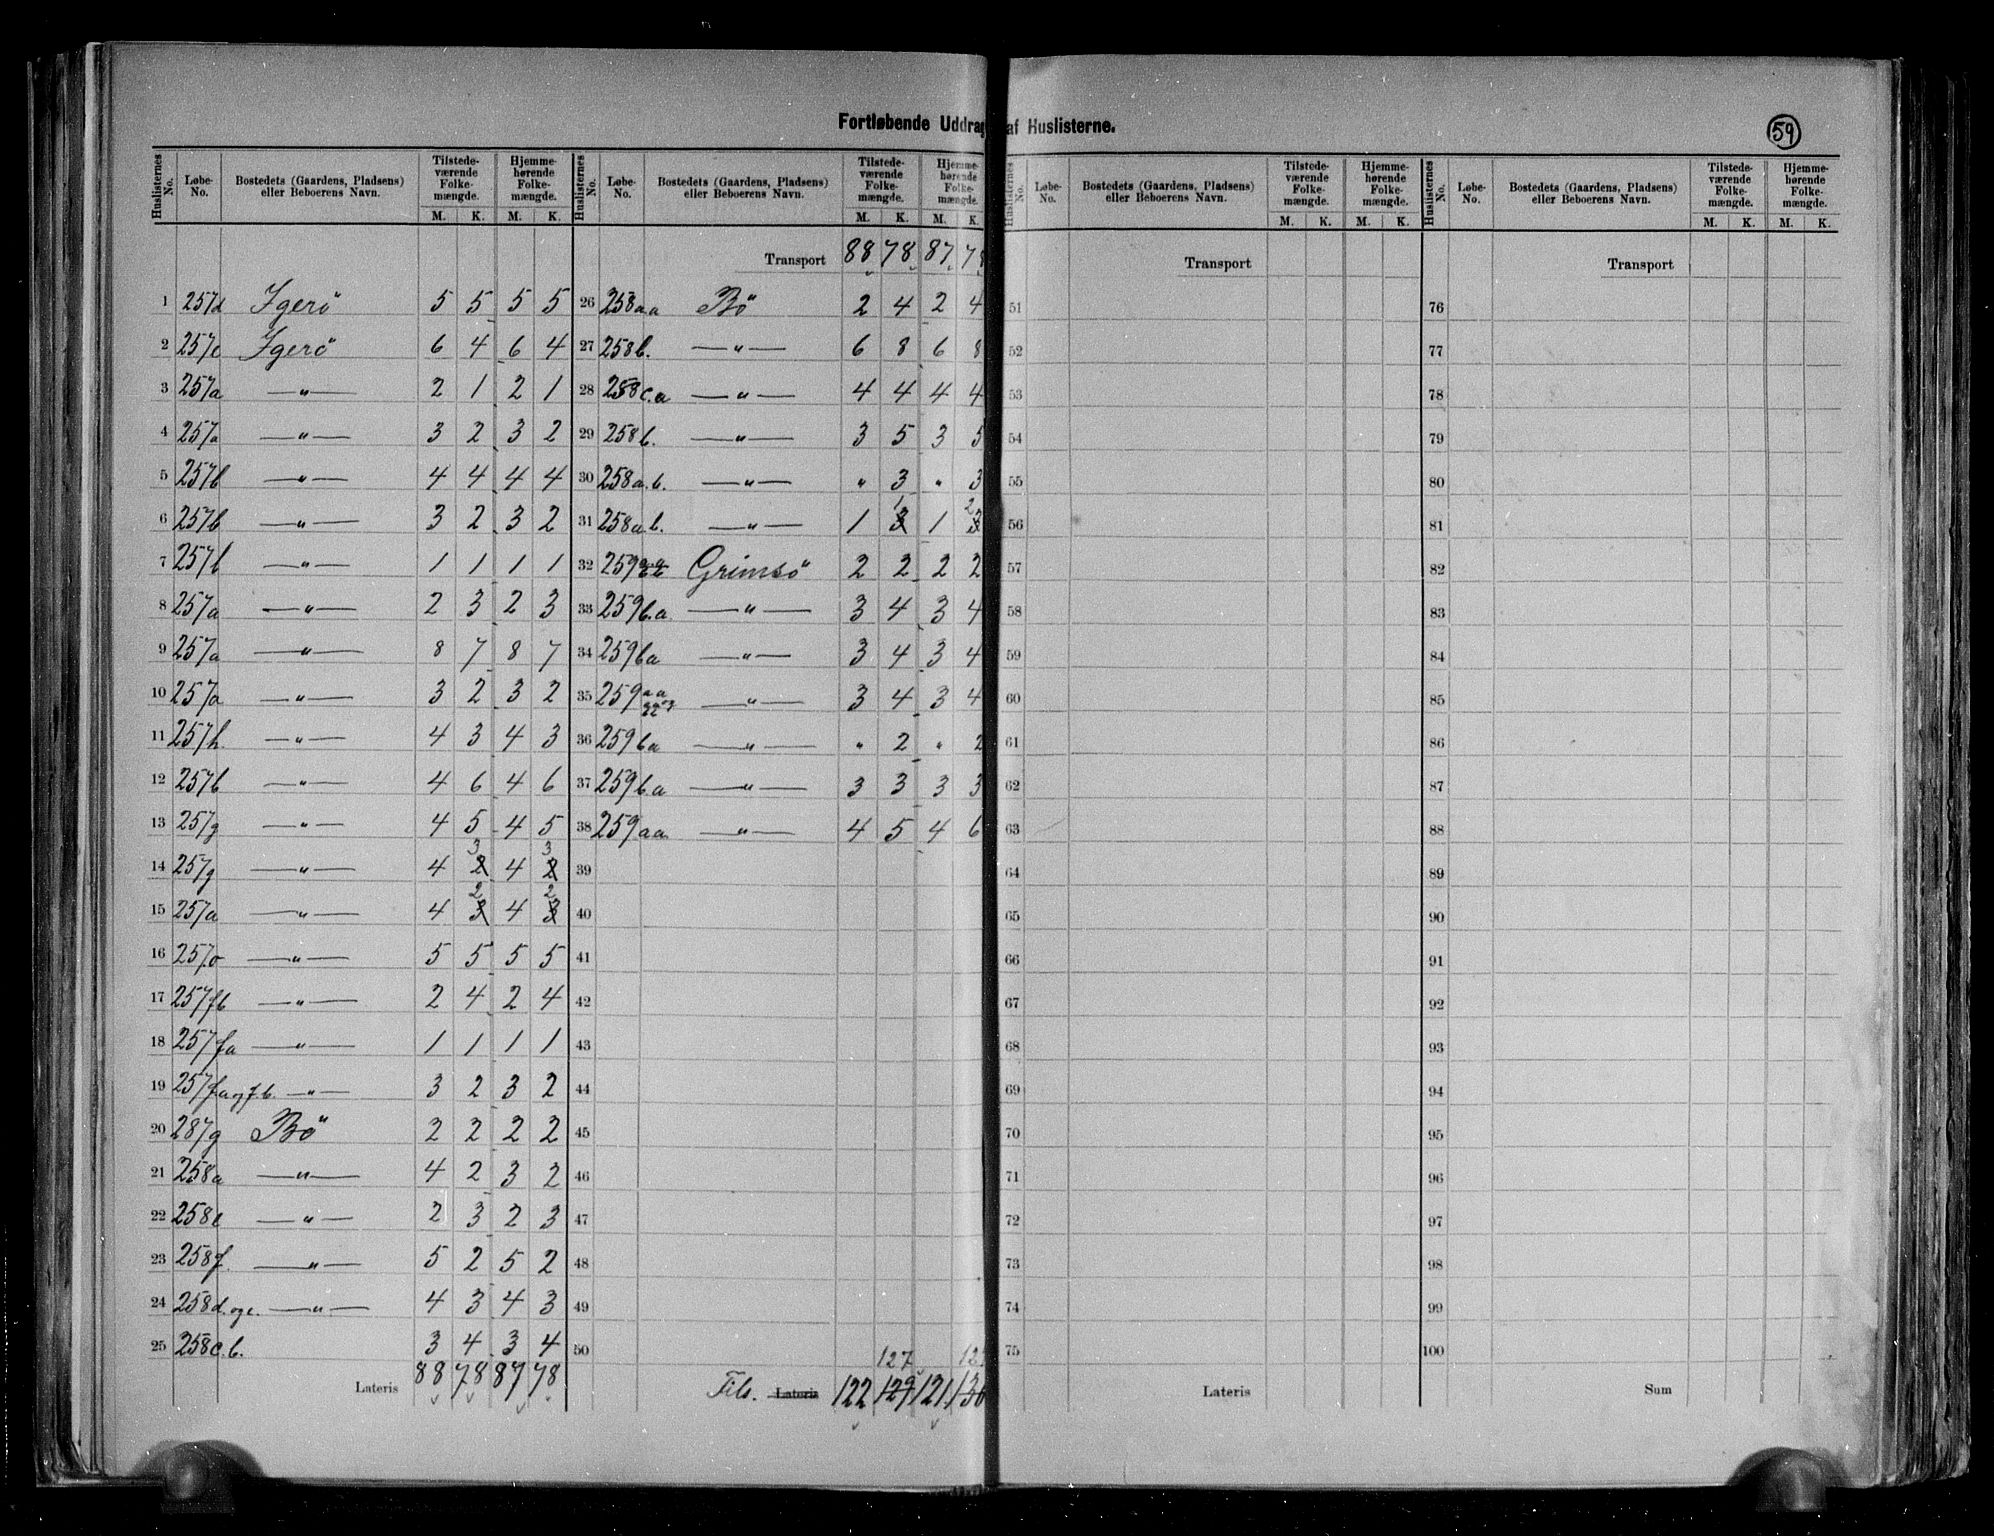 Fortløbende Uddrag af Huslisterne.
59
Huslisternes No. Løbe-No. Bostedets (Gaardens, Pladsens) eller Beboerens Navn. Tilstedeværende Folkemængde. M. K. Hjemmehørende Folkemængde. M. K.
1 257d Igerö 5 5 5 5
2 257c Igerö 6 4 6 4
3 257a —"— 2 1 2 1
4 257a —"— 3 2 3 2
5 257b —"— 4 4 4 4
6 257b —"— 3 2 3 2
7 257b —"— 1 1 1 1
8 257a —"— 2 3 2 3
9 257a —"— 8 7 8 7
10 257a —"— 3 2 3 2
11 257h. —"— 4 3 4 3
12 257b —"— 4 6 4 6
13 257g —"— 4 5 4 5
14 257g —"— 4 3 2 4 3 2
15 257a —"— 4 2 3 4 2 3
16 257 —"— 5 5 5 5
17 257fb —"— 2 4 2 4
18 257fa —"— 1 1 1 1
19 257fa og fb. —"— 3 2 3 2
20 287g Bö 2 2 2 2
21 258a —"— 4 2 3 2
22 258e —"— 2 3 2 3
23 258f. —"— 5 2 5 2
24 258d. og e. —"— 4 3 4 3
25 258c.b. 3 4 3 4
Lateris 88 78 87 78
Huslisternes No. Løbe-No. Bostedets (Gaardens, Pladsens) eller Beboerens Navn. Tilstedeværende Folkemængde. M. K. Hjemmehørende Folkemængde. M. K.
Transport 88 78 87 78
26 258a.a Bö 2 4 2 4
27 258b. —"— 6 8 6 8
28 258c.a —"— 4 4 4 4
29 258b. —"— 3 5 3 5
30 258a.b. —"— " 3 " 3
31 258a.b. —"— 1 1 3 1 2 3
32 259 Grimsö 2 2 2 2
33 259b.a. —"— 3 4 3 4
34 259ba —"— 3 4 3 4
35 259aa —"— 3 4 3 4
36 259ba —"— " 2 " 2
37 259b.a —"— 3 3 3 3
38 259aa. —"— 4 5 4 6
39
40
41
42
43
44
45
46
47
48
49
50
127
Tils. Lateris 122 129 121 130
Huslisternes No. Løbe-No. Bostedets (Gaardens, Pladsens) eller Beboerens Navn. Tilstedeværende Folkemængde. M. K. Hjemmehørende Folkemængde. M. K.
Transport
51
52
53
54
55
56
57
58
59
60
61
62
63
64
65
66
67
68
69
70
71
72
73
74
75
Lateris
Huslisternes No. Løbe-No. Bostedets (Gaardens, Pladsens) eller Beboerens Navn. Tilstedeværende Folkemængde. M. K. Hjemmehørende Folkemængde. M. K.
Transport
76
77
78
79
80
81
82
83
84
85
86
87
88
89
90
91
92
93
94
95
96
97
98
99
100
Sum